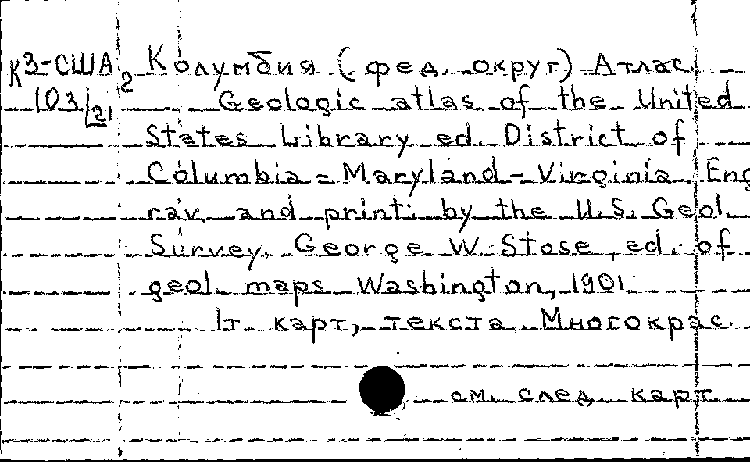 К3-США 2 Колумбия (фед. округ) Атлас.
103/21 Geologic atlas of the United
States Library ed. District of
Columbia - Maryland - Virginia. Eng
rav. and print. by the U.S. Geol.
Survey. George W. Stose, ed. of
geol. maps. Washington, 1901.
1т. карт, текста. Многокрас.
см. след. карт.